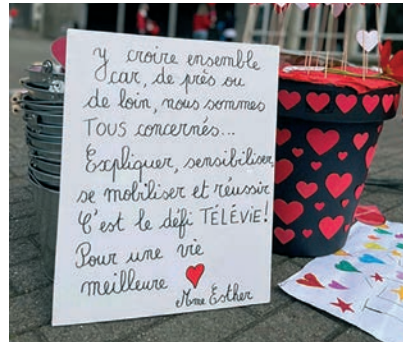 y croire ensemble
car, de près ou
de loin, nous sommes
TOUS concernés...
Expliquer, sensibiliser,
se mobiliser et réussir
C'est le défi TÉLÉVIE!
Pour une vie
meilleure
Mme Esther